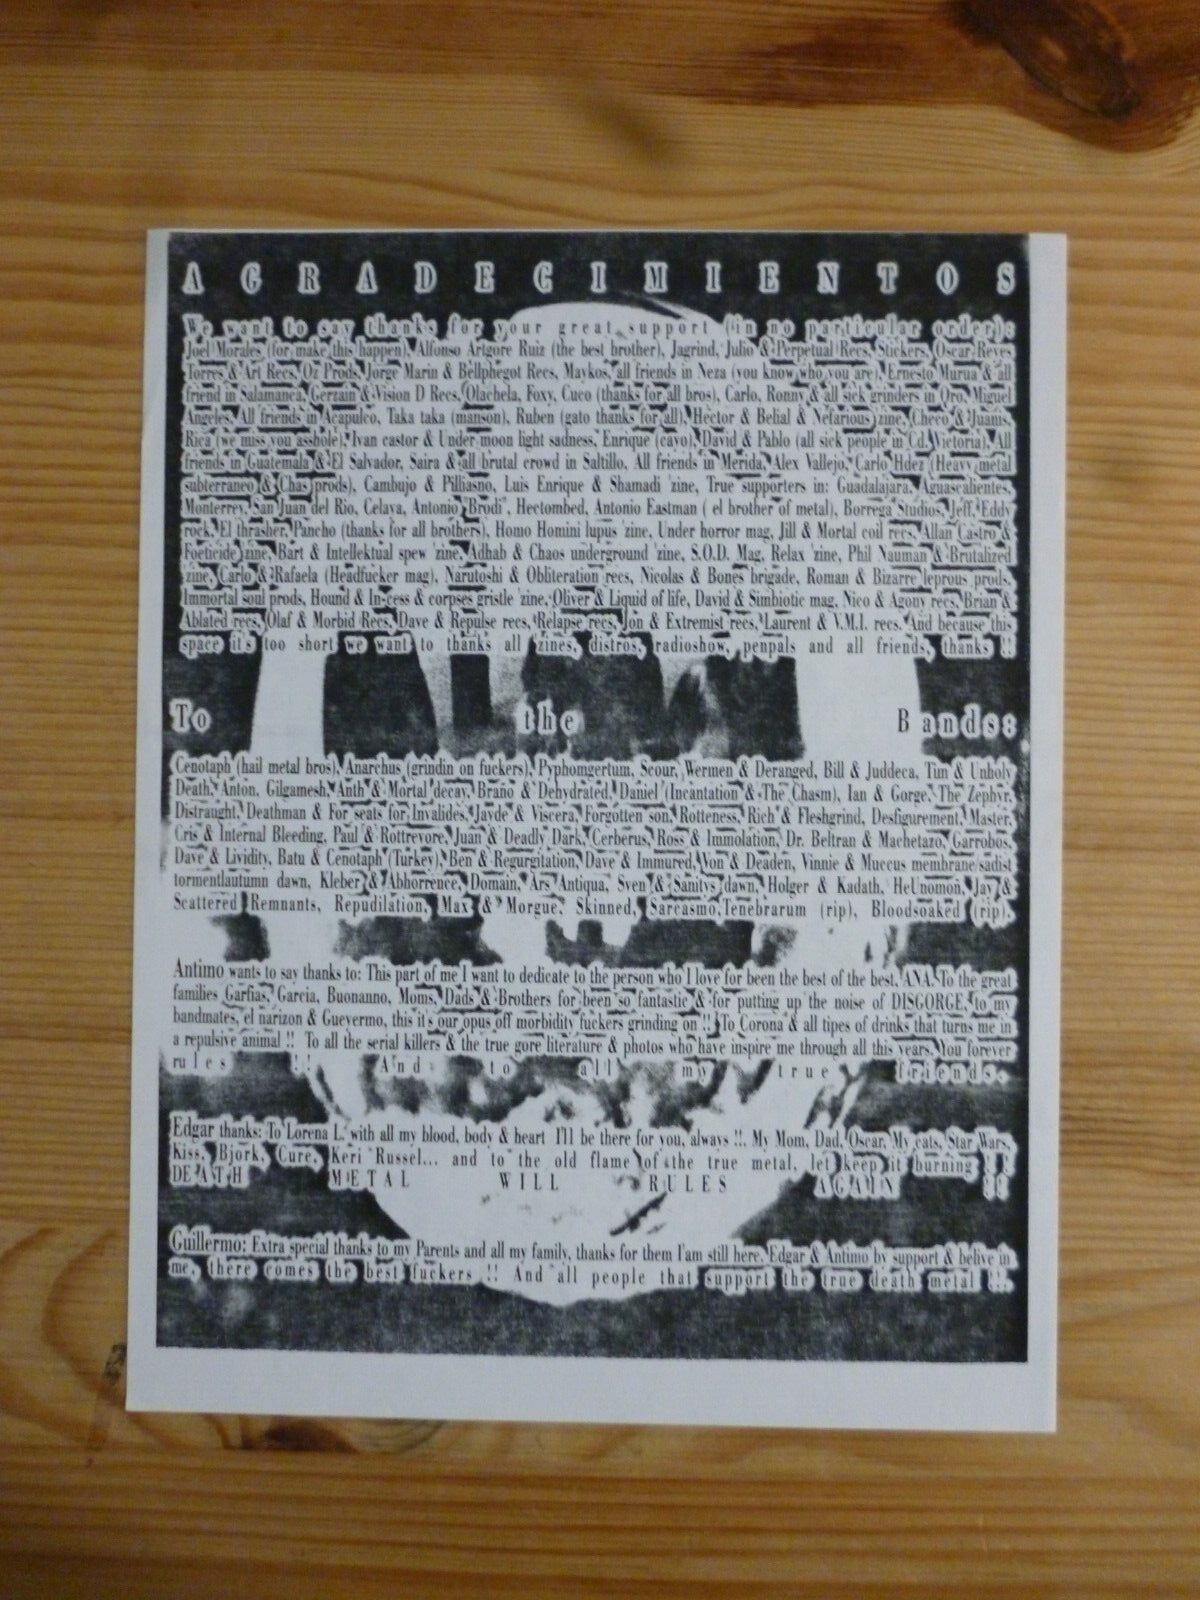 AGRADECIMIENTOS
We want to say thanks for your great support (in no particular order):
Joel Morales (for make this happen), Alfonso Artgore Ruiz (the best brother), Jagrind, Julio & Perpetual Recs, Stickers, Oscar Reyes
Torres & Art Recs, Oz Prods, Jorge Marin & Bellphegot Recs, Maykos, all friends in Neza (you know who you are), Ernesto Murua & all
friend in Salamanca, Gerzain & Vision D Recs, Olachela, Foxy, Cuco (thanks for all bros), Carlo, Ronny & all sick grinders in Qro, Miguel
Angeles, All friends in Acapulco, Taka taka (manson), Ruben (gato thanks for all), Hector & Belial & Nefarious zine, Checo & Juanis,
Rica (we miss you asshole), Ivan castor & Under moon light sadness, Enrique (cavo), David & Pablo (all sick people in Cd. Victoria), All
friends in Guatemala & El Salvador, Saira & all brutal crowd in Saltillo, All friends in Merida, Alex Vallejo, Carlo Hdez (Heavy metal
subterraneo & Chas prods), Cambujo & Pilliasno, Luis Enrique & Shamadi 'zine, True supporters in: Guadalajara, Aguascalientes,
Monterrey, San Juan del Rio, Celaya, Antonio "Brodi", Hectombed, Antonio Eastman ( el brother of metal), Borrega Studios, Jeff, Eddy
rock, El thrasher, Pancho (thanks for all brothers), Homo Homini lupus 'zine, Under horror mag, Jill & Mortal coil recs, Allan Castro &
Foeticide zine, Bart & Intellektual spew 'zine, Adhab & Chaos underground 'zine, S.O.D. Mag, Relax 'zine, Phil Nauman & Brutalized
zine, Carlo & Rafaela (Headfucker mag), Narutoshi & Obliteration recs, Nicolas & Bones brigade, Roman & Bizarre leprous prods,
Immortal soul prods, Hound & In-cess & corpses gristle 'zine, Oliver & Liquid of life, David & Simbiotic mag, Nico & Agony recs, Brian &
Ablated recs, Olaf & Morbid Recs, Dave & Repulse recs, Relapse recs, Jon & Extremist recs, Laurent & V.M.I. recs. And because this
space it's too short we want to thanks all zines, distros, radioshow, penpals and all friends, thanks !!
To the Bands:
Cenotaph (hail metal bros), Anarchus (grindin on fuckers), Pyphomgertum, Scour, Wermen & Deranged, Bill & Juddeca, Tim & Unholy
Death, Anton, Gilgamesh, Anth & Mortal decay, Brano & Dehydrated, Daniel (Incantation & The Chasm), Ian & Gorge, The Zephyr,
Distraught, Deathman & For seats for Invalides, Jayde & Viscera, Forgotten son, Rotteness, Rich & Fleshgrind, Desfigurement, Master,
Cris & Internal Bleeding, Paul & Rottrevore, Juan & Deadly Dark, Cerberus, Ross & Immolation, Dr. Beltran & Machetazo, Garrobos,
Dave & Lividity, Batu & Cenotaph (Turkey), Ben & Regurgitation, Dave & Immured, Von & Deaden, Vinnie & Muccus membrane sadist
tormentlautumn dawn, Kleber & Abhorrence, Domain, Ars Antiqua, Sven & Sanitys dawn, Holger & Kadath, HeUnomon, Jay &
Scattered Remnants, Repudilation, Max & Morgue, Skinned, Sarcasmo,Tenebrarum (rip), Bloodsoaked (rip).
Antimo wants to say thanks to: This part of me I want to dedicate to the person who I love for been the best of the best, ANA. To the great
families Garfias, Garcia, Buonanno, Moms, Dads & Brothers for been so fantastic & for putting up the noise of DISGORGE, to my
bandmates, el narizon & Guevermo, this it's our opus off morbidity fuckers grinding on !! To Corona & all tipes of drinks that turns me in
a repulsive animal !! To all the serial killers & the true gore literature & photos who have inspire me through all this years. You forever
rules !! And to all my true friends.
Edgar thanks: To Lorena L. with all my blood, body & heart I'll be there for you, always !!. My Mom, Dad, Oscar, My cats, Star Wars,
Kiss, Bjork, Cure, Keri Russel... and to the old flame of the true metal, let keep it burning !!
DEATH METAL WILL RULES AGAIN !!
Guillermo: Extra special thanks to my Parents and all my family, thanks for them I'am still here. Edgar & Antimo by support & belive in
me, there comes the best fuckers !! And all people that support the true death metal !!.